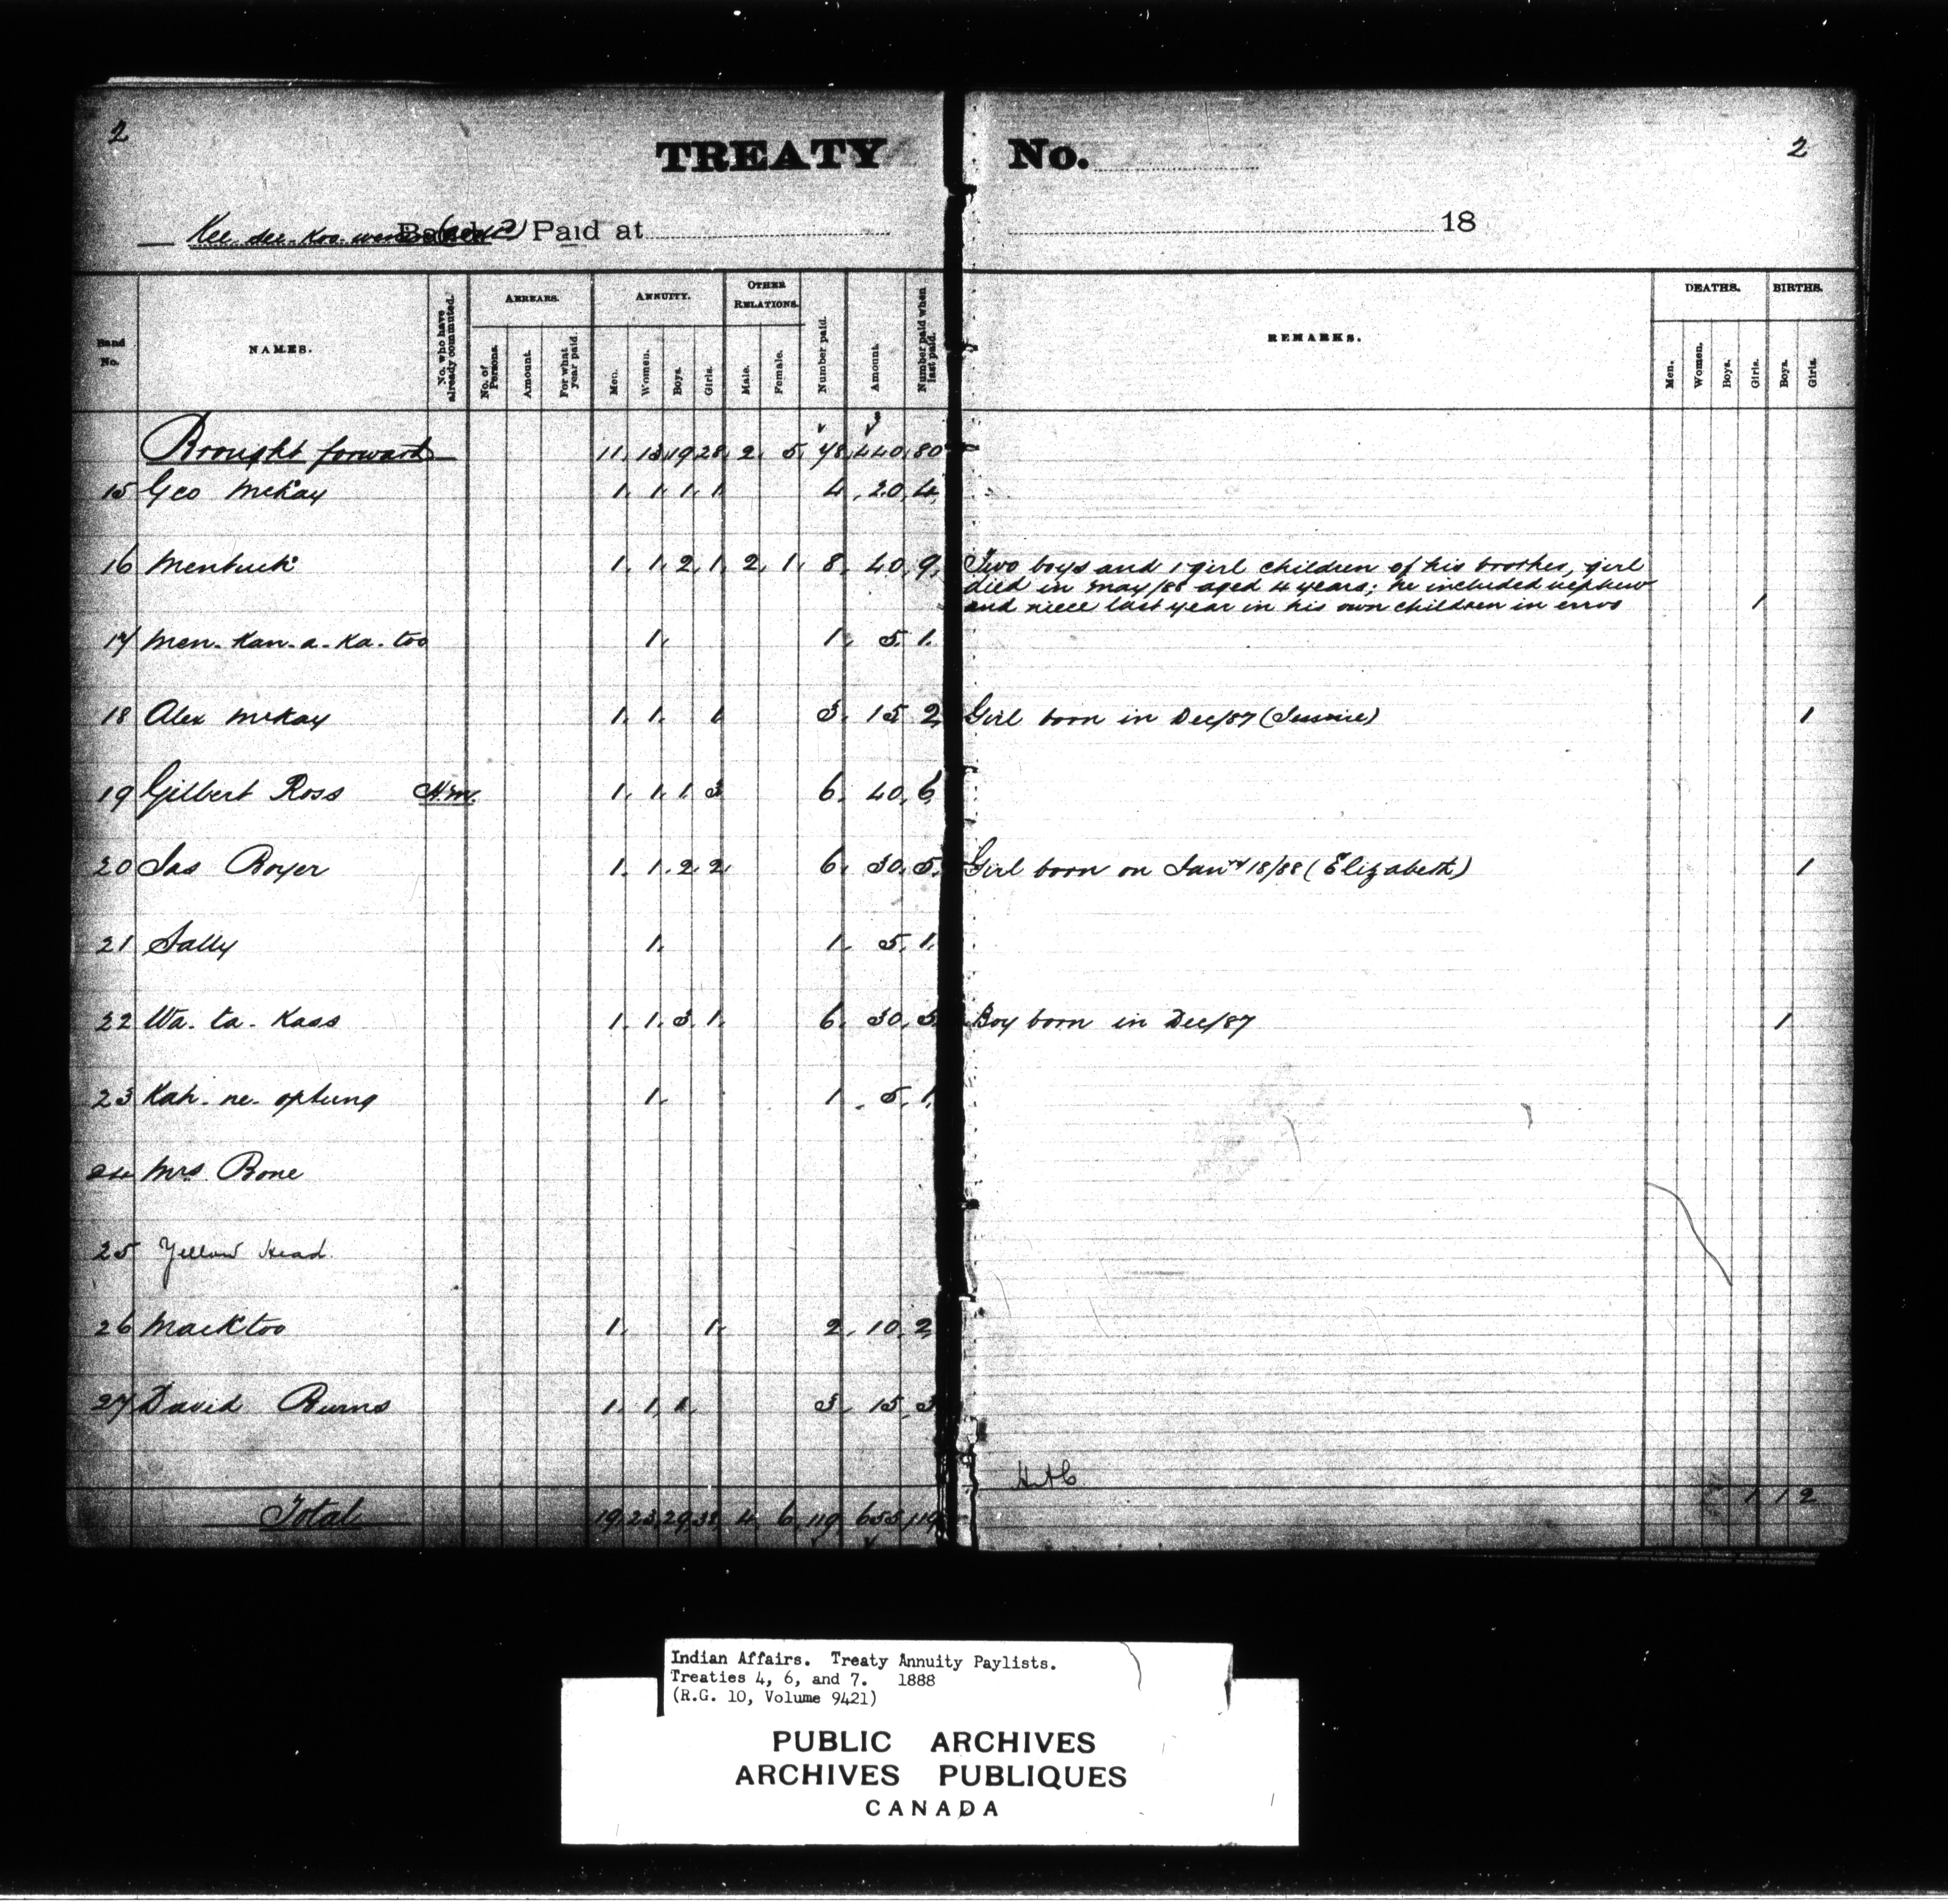 2
2
TREATY No.
Kee-see-Koo-wenin Band Paid at 18
Band No.
NAMES.
No. who have already commuted.
ARREARS.
No. of Persons.
Amount.
For what year paid.
ANNUITY.
Men.
Women.
Boys.
Girls.
OTHER RELATIONS.
Male.
Female.
Number paid.
Amount.
Number paid when last paid.
REMARKS.
DEATHS.
Men.
Women.
Boys.
Girls.
BIRTHS.
Boys.
Girls.
Brought forward 11 13 19 28 2 5 78 440 80
15 Geo McKay 1 1 1 1 4 20 4
16 Mentuck 1 1 2 1 2 1 8 40 9 Two boys and 1 girl children of his brother, girl
died in May/88 aged 4 years; he included nephew
and niece last year in his own children in error 1
17 Men-Kan-a-Ka-too 1 1 5 1
18 Alex McKay 1 1 1 3 15 2 Girl born in Dec/87 1
19 Gilbert Ross H.M. 1 1 1 3 6 40 6
20 Jas Boyer 1 1 2 2 6 30 5 Girl born on Jany 18/88 (Elizabeth) 1
21 Sally 1 1 5 1
22 Wa-ta-Kass 1 1 3 1 6 30 5 Boy born in Dec/87 1
23 Kah-ne-optung 1 1 5 1
24 Mrs Bone
25 Yellow Head
26 Macktoo 1 1 2 10 2
27 David Burns 1 1 1 3 15 3
Total 19 23 29 38 4 6 119 655 119 1 1 2
Indian Affairs. Treaty Annuity Paylists.
Treaties 4, 6, and 7. 1888
(R.G. 10, Volume 9421)
PUBLIC ARCHIVES
ARCHIVES PUBLIQUES
CANADA